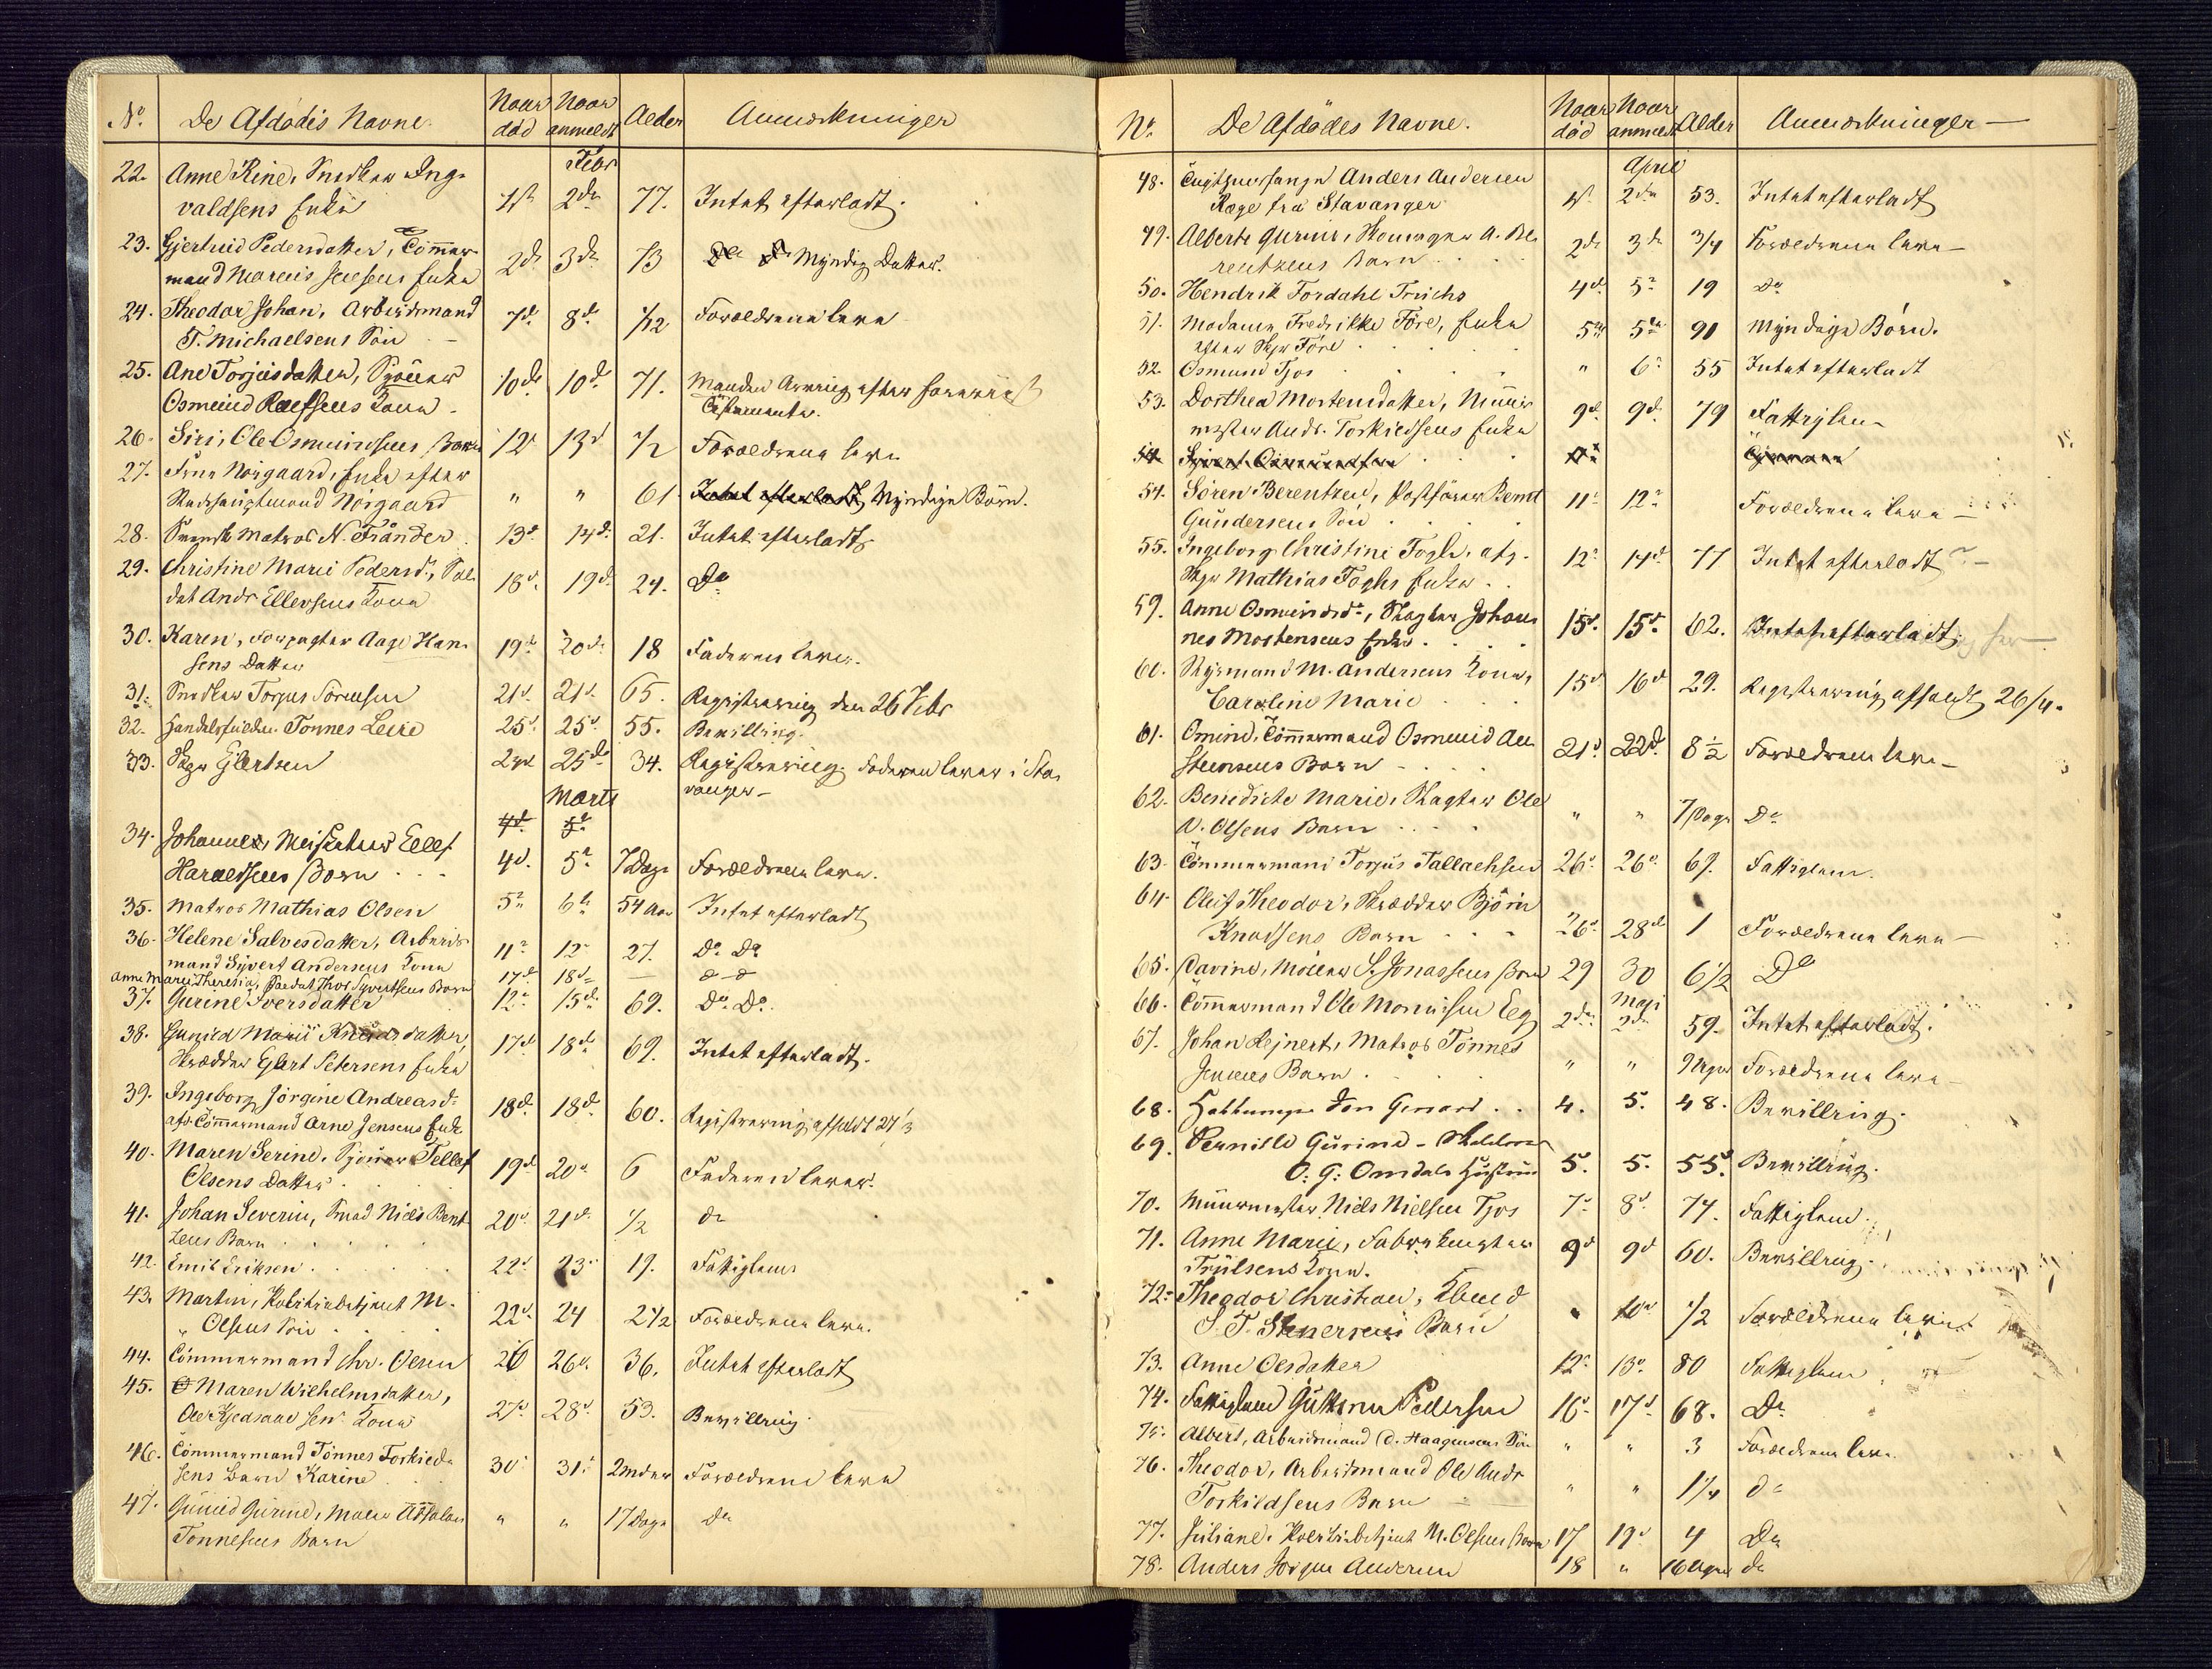 No. De Afdødes Navne. Naar død Naar anmeldt Alder Anmærkninger
Febr
22. Anne Kine, Snedker Ing-
valdsens Enke 1st 2den 77. Intet efterladt.
23. Gjertrud Pedersdatter, Tømmer-
mand Marcus Jensens Enke 2de 3de 73 Myndig Datter.
24. Theodor Johan, Arbeidsmand
T. Michaelsens Søn 7d. 8d. 7/12 Forældrene leve
25. Ane Torjusdatter, Skjøner
Osmund Roelfsens Kone 10de 10d. 71. Manden Arving efter foreviist
Testamente.
26. Siri, Ole Osmundsens Barn 12d 13d 1/2 Forældrene leve
27. Frue Nørgaard, Enke efter
Stadshauptmand Nørgaard " " 61 Intet efterladt, Myndige Børn.
28. Svensk Matros N. Fränder 13d. 14d. 21. Intet efterladt
29. Christine Marie Pedersd., Sol-
dat Andr Ellevsens Kone 18d. 19d. 24. Do
30. Karen, Forpagter Aage Han-
sens Datter 19d 20d. 18 Faderen lever.
31. Snedker Torjus Sørensen 21d. 21d. 65. Registrering den 26 Febr
32. Handelsfuldm. Tønnes Leire 25d. 25d 55. Bevilling.
33. Skpr Gjertsen 23d 25de 34. Registrering. Faderen lever i Sta-
vanger
Marts
4d. 5d
34. Johannes, Meiskeker Ellef
Haraldsens Barn 4d. 5d 7 Dage Forældrene leve.
35. Matros Mathias Olsen 5d 6te 54 Aar Intet efterladt
36. Helene Salvesdatter, Arbeids-
mand Sivert Andersens Kone 11d 12d 27. Do Do
Anne Marie Theresia, Soldat Thor Syvertsens Barn 17d 18d — d-d
37. Gurine Iversdatter 12d 15d. 69. Do Do.
38. Gunild Marie Knudsdatter,
Skrædder Gjert Petersens Enke 17d 18de 69. Intet efterladt.
39. Ingeborg Jørgine Andreasd.
afd. Tømmermand Arne Jensens Enke 18d. 18d. 60. Registrering afholdt 27/3
40. Maren Serine, Skjøner Tellef
Olsens Datter 19d 20d 6 Faderen lever.
41. Johan Severin, Smed Niels Bent-
zens Barn 20d. 21d. 1/2 do
42. Emil Eriksen 22d 23d 19. Fattiglem
43. Martin, Politibetjent M.
" Olsens Søn 22d. 24 2 1/2 Forældrene leve.
44. Tømmermand Chr. Olsen 26 26d. 36. Intet efterladt
45. Maren Wilhelmsdatter,
Ole Kjedsaae sen. Kone 27d 28d. 53. Bevilling
46. Tømmermand Tønnes Torkilds-
sens Barn Karine 30d 31d 2 Mdr Forældrene leve
47. Gunild Gurine, Maler Absalon
Tønnesens Barn " " 17 Dage do
No. De Afdødes Navne. Naar død Naar anmeldt Alder Anmærkninger
April
48. Tugthusfange Anders Andersen
Røge fra Stavanger 1st 2den 53. Intet efterladt
49. Alberte Gurine, Skomager A. Be-
rentzens Barn 2de 3de 3/4 Forældrene leve
50. Hendrik Fordahl Truchs 4d. 5d 19 Do
51. Madame Fredrikke Fore, Enke
efter Skpr Fore 5te 5te 90 Myndige Børn.
52. Osmund Tjos " 6d 55 Intet efterladt
53. Dorthea Mortensdatter, Muur-
mester Andr. Torkildsens Enke 9d. 9d. 79 Fattiglem
54. Sivert Osmundsen
54. Søren Berentzen, Postfører Bernt
Gundersens Søn 11d 12d Forældrene leve
55. Ingeborg Christine Fogh, afg.
Skpr Mathias Foghs Enke 12d 14d 77 Intet efterladt
59. Anne Osmundsd., Slagter Johan-
nes Mortensens Enke 15d. 15d. 62. Intet efterladt
60. Styrmand M. Andersens Kone,
Caroline Marie 15d 16d 29. Registrering afholdt 26/4.
61. Omine, Tømmermand Osmund Au-
stensens Barn 21d 22d. 8 1/2 Forældrene leve
62. Benedicte Marie, Slagter Ole
N. Olsens Barn " " 7 Dage Do
63. Tømmermand Torjus Tallachsen 26d 26d 69. Fattiglem.
64. Oluf Theodor, Skrædder Bjørn
Knudsens Barn 26d 28de 1 Forældrene leve
65. Davine, Møller S. Jonassens Barn 29 30 6 1/2 Do
Maj
66. Tømmermand Ole Monsen Eeg 2den 2de 59. Intet efterladt.
67. Johan Rejnert, Matros Tønnes
Jensens Barn " " 9 Uger Forældrene leve
68. Jon Gerard 4. 5. 48. Bevilling.
69. Pernille Gurine
O. G. Omdals Hustru 5. 5. 55. Bevilling.
70. Muurmester Niels Nielsen Tjos 7d 8d 74. Fattiglem.
71. Anne Marie,
Truelsens Kone. 9d 9d 60. Bevilling.
72. Theodor Christian,
S. T. Stenersens Barn " 10d 1/2 Forældrene leve
73. Anne Olsdatter 12d 13d 80 Fattiglem
74. Fattiglem Guttorm Pedersen 16d 17d 68. Do
75. Albert, Arbeidsmand D. Haagensens Søn " " 3 Forældrene leve
76. Theodor, Arbeidsmand Ole Andr
Torkildsens Barn " " 1 1/4 do
77. Juliane, Politibetjent M. Olsens Barn 17 19d 4 Do
78. Anders Jørgen Andersen 18 " 16 Uger do